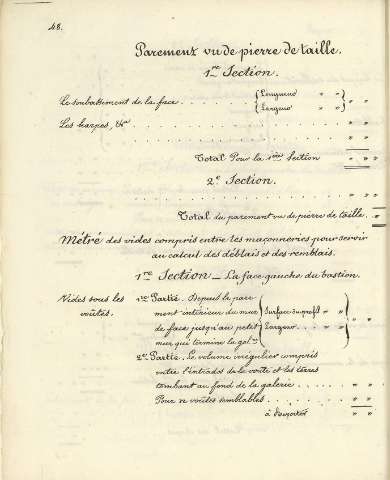 48.
Parement vu de pierre de taille.
1re Section.
Le soubassement de la face { Longueur " "
{ Largeur " " " "
Les harpes, &a . . . . . . . . . . " "
. . . . . . . . . . " "
Total Pour la 1ère Section " "
2e Section.
. . . . . . . . . . " "
Total du parement vu de pierre de taille. "
Métré des vides compris entre les maçonneries pour servir
au calcul des déblais et des remblais.
1re Section _ La face gauche du bastion.
Vides sous les voûtes. 1re Partie. Depuis le pare-
ment intérieur du mur { Surface du profil " "
de face jusqu'au petit { Largeur . . . " " " "
mur qui termine la gale
2e Partie. Le volume irrégulier compris
entre l'intrados de la voûte et les terres
tombant au fond de la galerie . . . . . " "
Pour n voûtes semblables . . . . . . " "
à reporter " "